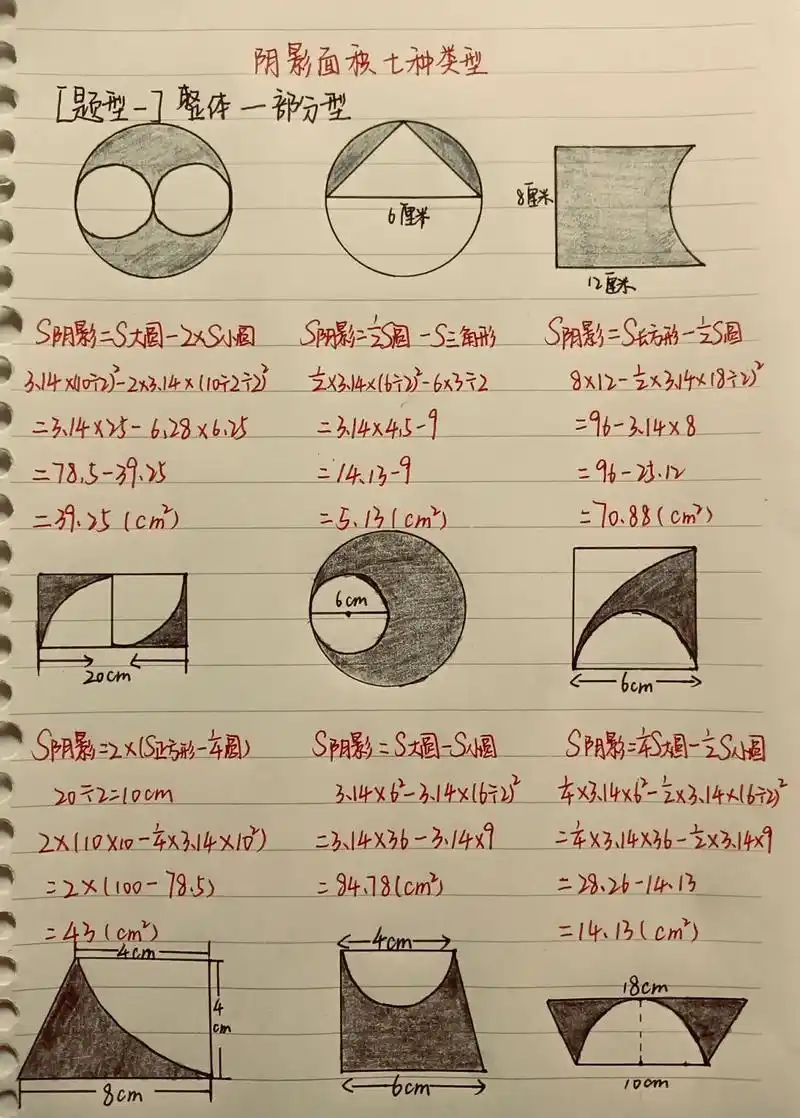 阴影面积七种类型
[题型一] 整体一部分型
6厘米
8厘米
12厘米
S阴影=S大圆-2×S小圆
3.14×(10÷2)²-2×3.14×(10÷2÷2)²
=3.14×25-6.28×6.25
=78.5-39.25
=39.25(cm²)
S阴影=½S圆-S三角形
½×3.14×(6÷2)²-6×3÷2
=3.14×4.5-9
=14.13-9
=5.13(cm²)
S阴影=S长方形-½S圆
8×12-½×3.14×(8÷2)²
=96-3.14×8
=96-25.12
=70.88(cm²)
20cm
6cm
6cm
S阴影=2×(S正方形-¼圆)
20÷2=10cm
2×(10×10-¼×3.14×10²)
=2×(100-78.5)
=43(cm²)
S阴影=S大圆-S小圆
3.14×6²-3.14×(6÷2)²
=3.14×36-3.14×9
=84.78(cm²)
S阴影=¼S大圆-½S小圆
¼×3.14×6²-½×3.14×(6÷2)²
=¼×3.14×36-½×3.14×9
=28.26-14.13
=14.13(cm²)
4cm
4cm
8cm
4cm
6cm
18cm
10cm